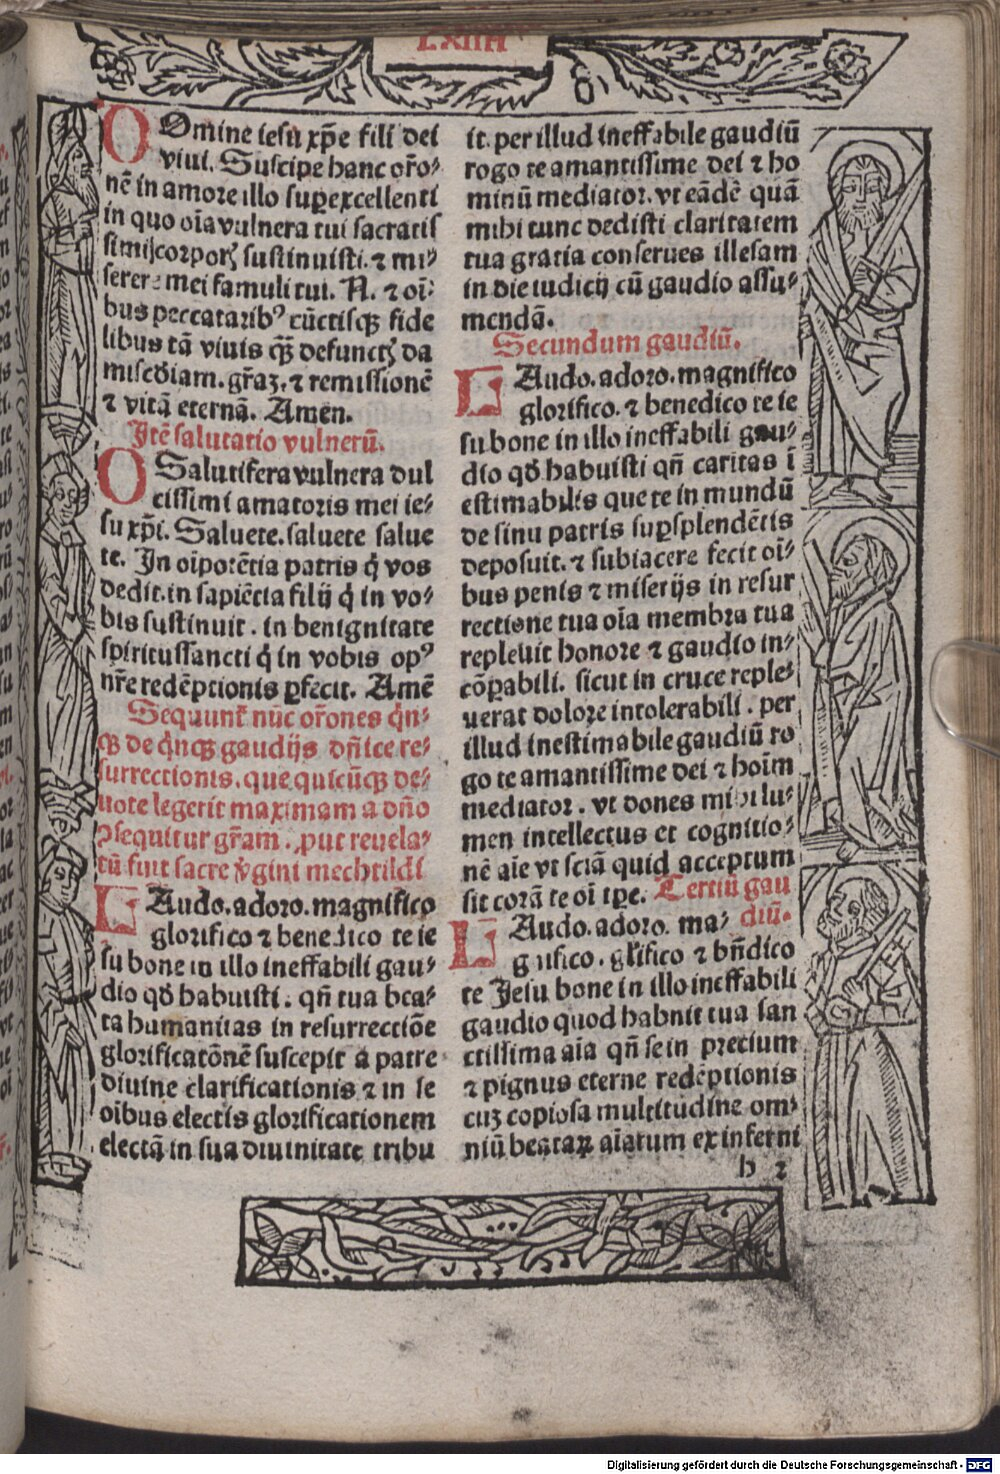 LXIIII
O Omine iesu xp̄e fili dei
viui. Suscipe hanc or̄o⸗
nē in amore illo suꝑexcellenti
in quo oīa vulnera tui sacratis
simijcorporꝭ sustinuisti. ⁊ mi⸗
serere mei famuli tui. N. ⁊ oī⸗
bus peccataribꝰ cūctisqꝫ fide
libus tā viuis qꝫ̄ defunctꝭ da
misc̄diam. gr̄aꝫ. ⁊ remissionē
⁊ vitā eternā. Amen.
Itē salutatio vulnerū.
O Salutifera vulnera dul
cissimi amatoris mei ie⸗
su xp̄i. Saluete. saluete salue
te. In oīpotētia patris q̇ vos
dedit. in sapiētia filij q̇ in vo⸗
bis sustinuit. in benignitate
spiritussancti q̇ in vobis opꝰ
nr̄e redēptionis ꝑfecit. Amē
Sequunt̄ nūc or̄ones q̇n⸗
qꝫ de q̇nqꝫ gaudijs dn̄ice re⸗
surrectionis. que quicūqꝫ de⸗
uote legerit maximam a dn̄o
ꝯsequitur gr̄am. ꝓut reuela⸗
tū fuit sacre v̇gini mechtildi
L Audo. adoro. magnifico
glorifico ⁊ benedico te ie
su bone in illo ineffabili gau⸗
dio qd̄ habuisti. qn̄ tua bea⸗
ta humanitas in resurrectiōe
glorificatōnē suscepit a patre
diuine clarificationis ⁊ in se
oībus electis glorificationem
electā in sua diuinitate tribu
it. per illud ineffabile gaudiū
rogo te amantissime dei ⁊ ho
minū mediator. vt eādē quā
mihi tunc dedisti claritatem
tua gratia conserues illesam
in die iudicij cū gaudio assu⸗
mendā.
Secundum gaudiū.
L Audo. adoro. magnifico
glorifico. ⁊ benedico te ie
su bone in illo ineffabili gau⸗
dio qd̄ habuisti qn̄ caritas ī
estimabilis que te in mundū
de sinu patris suꝑsplendētis
deposuit. ⁊ subiacere fecit oī⸗
bus penis ⁊ miserijs in resur
rectione tua oīa membra tua
repleuit honore ⁊ gaudio in⸗
cōꝑabili. sicut in cruce reple⸗
uerat dolore intolerabili. per
illud inestimabile gaudiū ro
go te amantissime dei ⁊ hoīm
mediator. vt dones mihi lu⸗
men intellectus et cognitio⸗
nē aīe vt sciā quid acceptum
sit corā te oī tꝑe. Tertiū gau
L Audo. adoro. ma⸗ diū.
gnifico. gl̄ifico ⁊ bn̄dico
te Jesu bone in illo ineffabili
gaudio quod habnit tua san
ctissima aīa qn̄ se in precium
⁊ pignus eterne redēptionis
cuꝫ copiosa multitudine om⸗
niū beataꝝ aīarum ex inferni
h 2
Digitalisierung gefördert durch die Deutsche Forschungsgemeinschaft - DFG